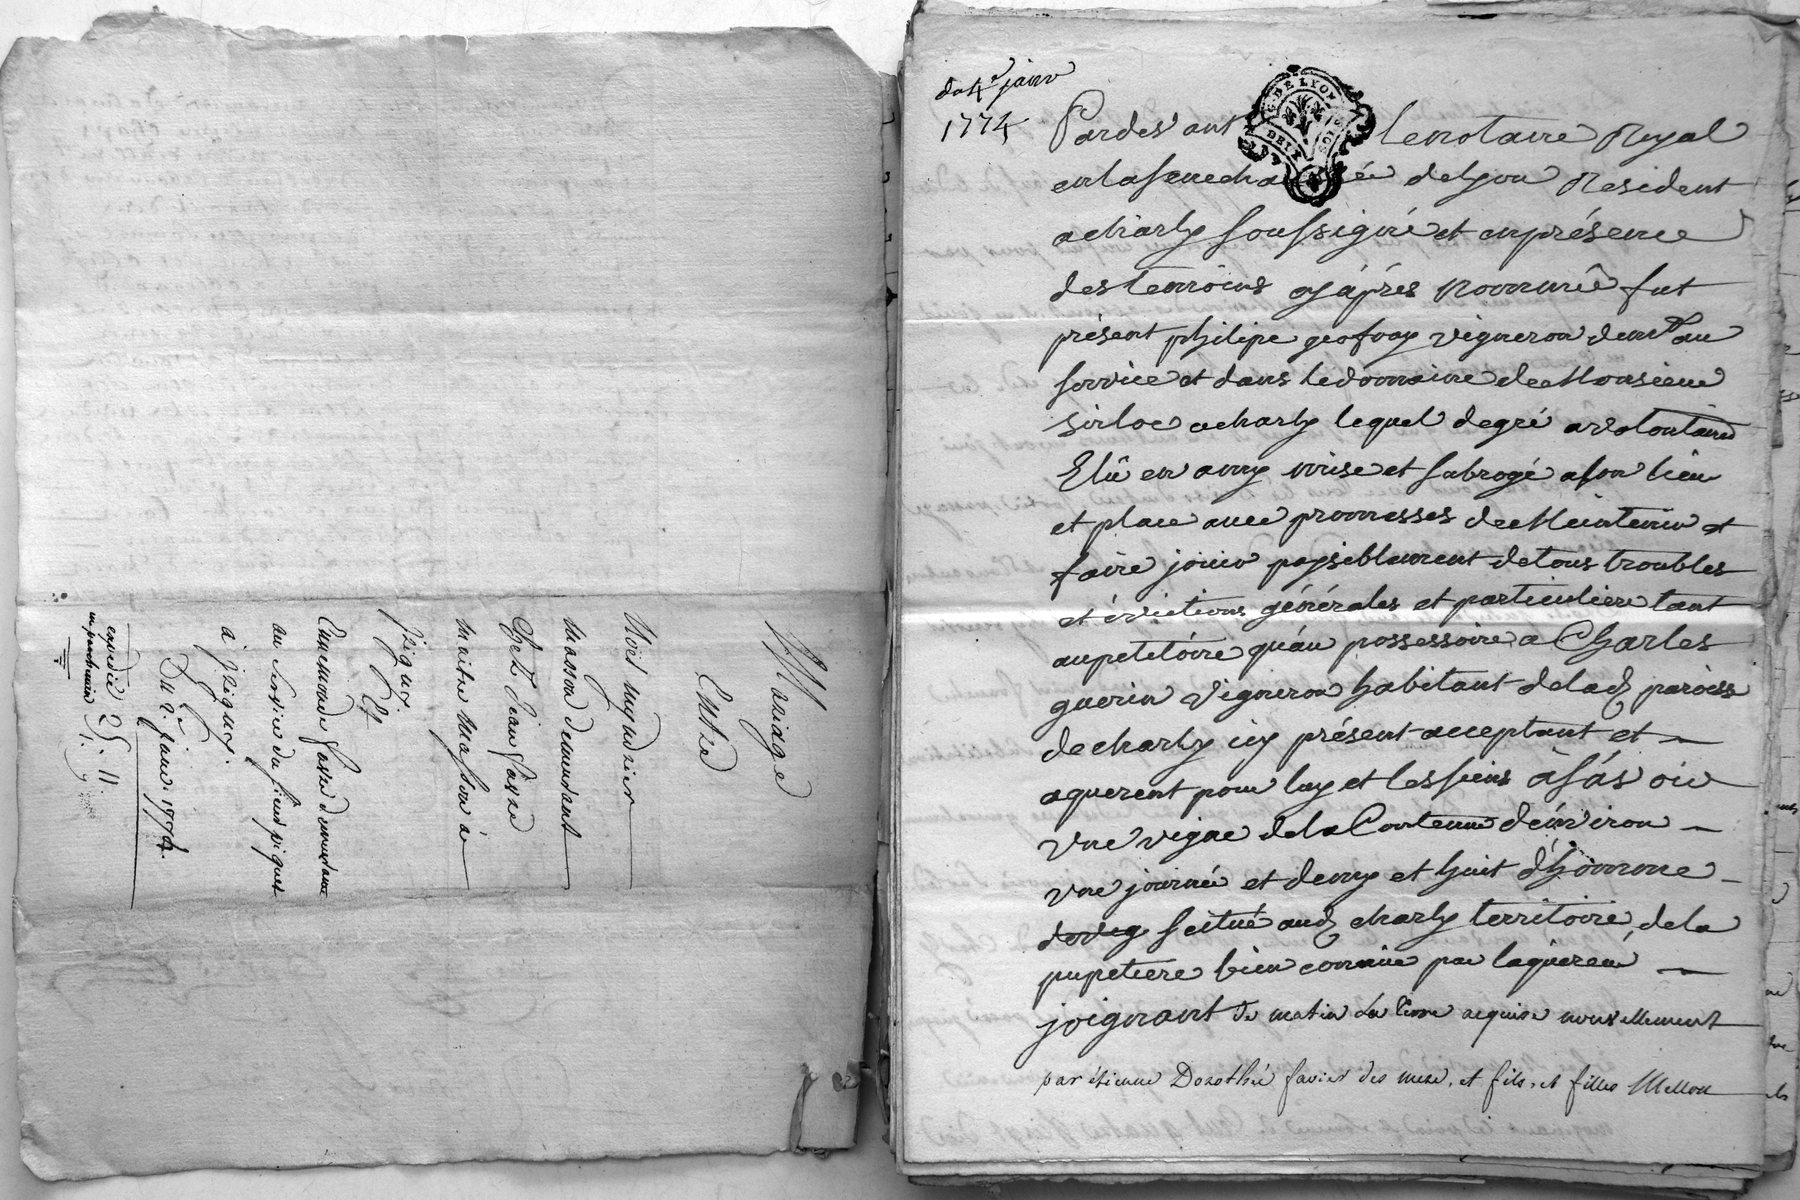 Mariage
Entre
Noël
masson demeurant
Et D.lle Jean favre
maitre masson à
jrigny Et
Ennemonde favre demeurant
au service du sieur piquet
à jrigny.
Du 2.e janv. 1774.
expedié 2 S. 11.
en parchemin
du 4e janv
1774
G. DE LYON
DEUX SOLS
Pardevant le notaire Royal
en la senechaussée de Lyon Resident
a charly soussigné et en présence
des temoins cy áprés nommée fut
présent philipe geofray vigneron demt au
service et dans le domaine de Monsieur
Sirloc a charly lequel de gré a volontaire
Elû en amy mise et subrogé a son lieu
et place avec promesses de Meintenir et
faire jouir paysiblement de tous troubles
et évictions générales et particuliere tant
au petitóire qu'áu possessoire a Charles
guerin vigneron habitant de lad paroisse
de charly icy présent acceptant et
aquerent pour luy et les siens á sás oir
vne vigne de la Contenue d'environ
vne journée et demy et huit d'hómme
scitué aud charly territoire de la
pupetiere bien connue par l'aquereur
joignant de matin la terre acquise nouvellement
par étienne Dorothée favier des mere, et fils, et filles Mellon